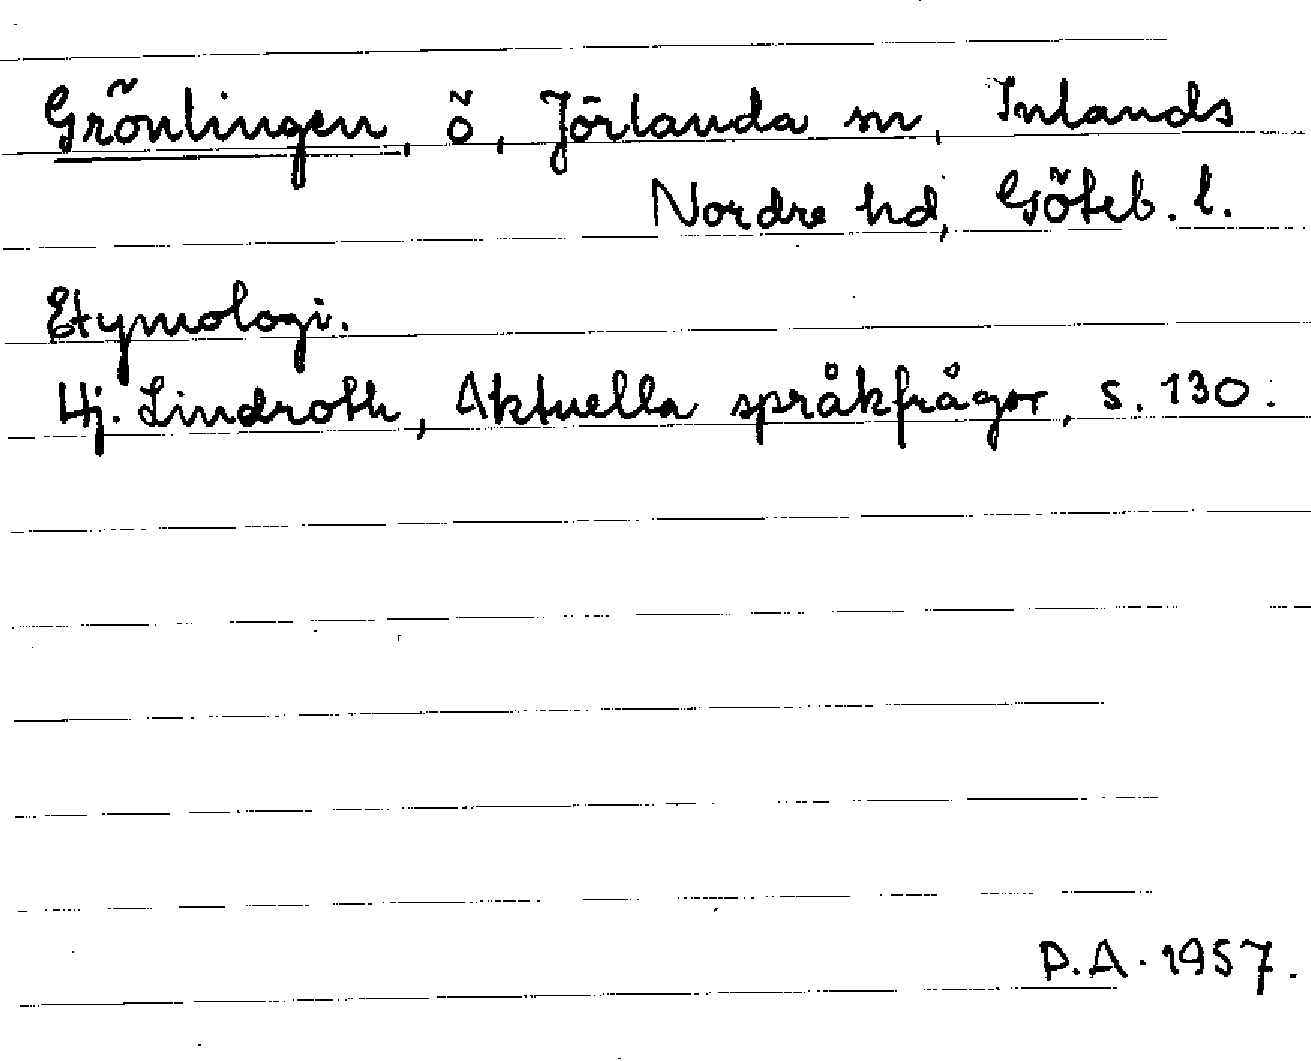 Grönlingen, ö, Jörlanda sn, Inlands
Nordre hd, Göteb. l.
Etymologi.
Hj. Lindroth, Aktuella språkfrågor, s. 130.
P.A. 1957.